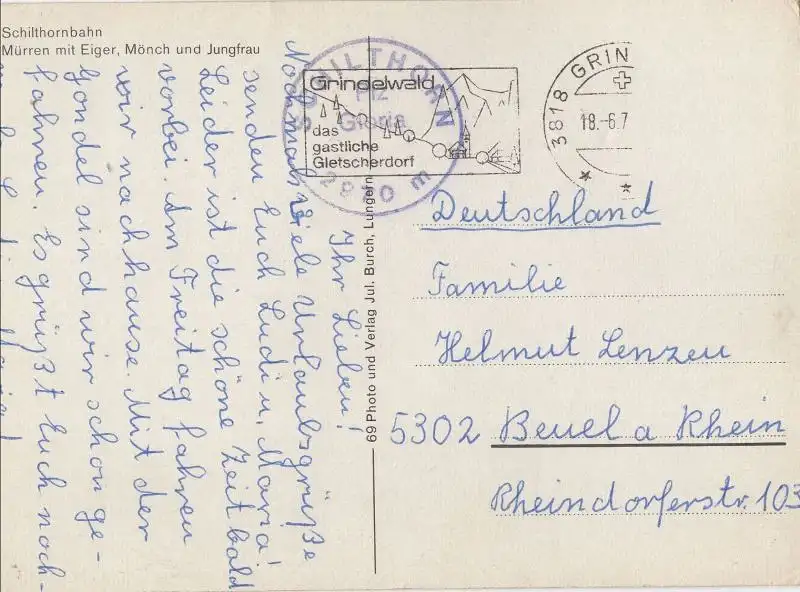 Schilthornbahn
Mürren mit Eiger, Mönch und Jungfrau
Ihr Lieben!
Nochmal viele Urlaubsgrüße
senden Euch Ludi u. Maria!
Leider ist die schöne Zeit bald
vorbei. Am Freitag fahren
wir nachhause. Mit der
Gondel sind wir schon ge-
fahren. Es grüßt Euch noch-
69 Photo und Verlag Jul. Burch, Lungern
SCHILTHORN
Piz
Gloria
2970 m
Grindelwald
das
gastliche
Gletscherdorf
3818 GRIN
18.-6.7
Deutschland
Familie
Helmut Lenzen
5302 Beuel a Rhein
Rheindorferstr. 103